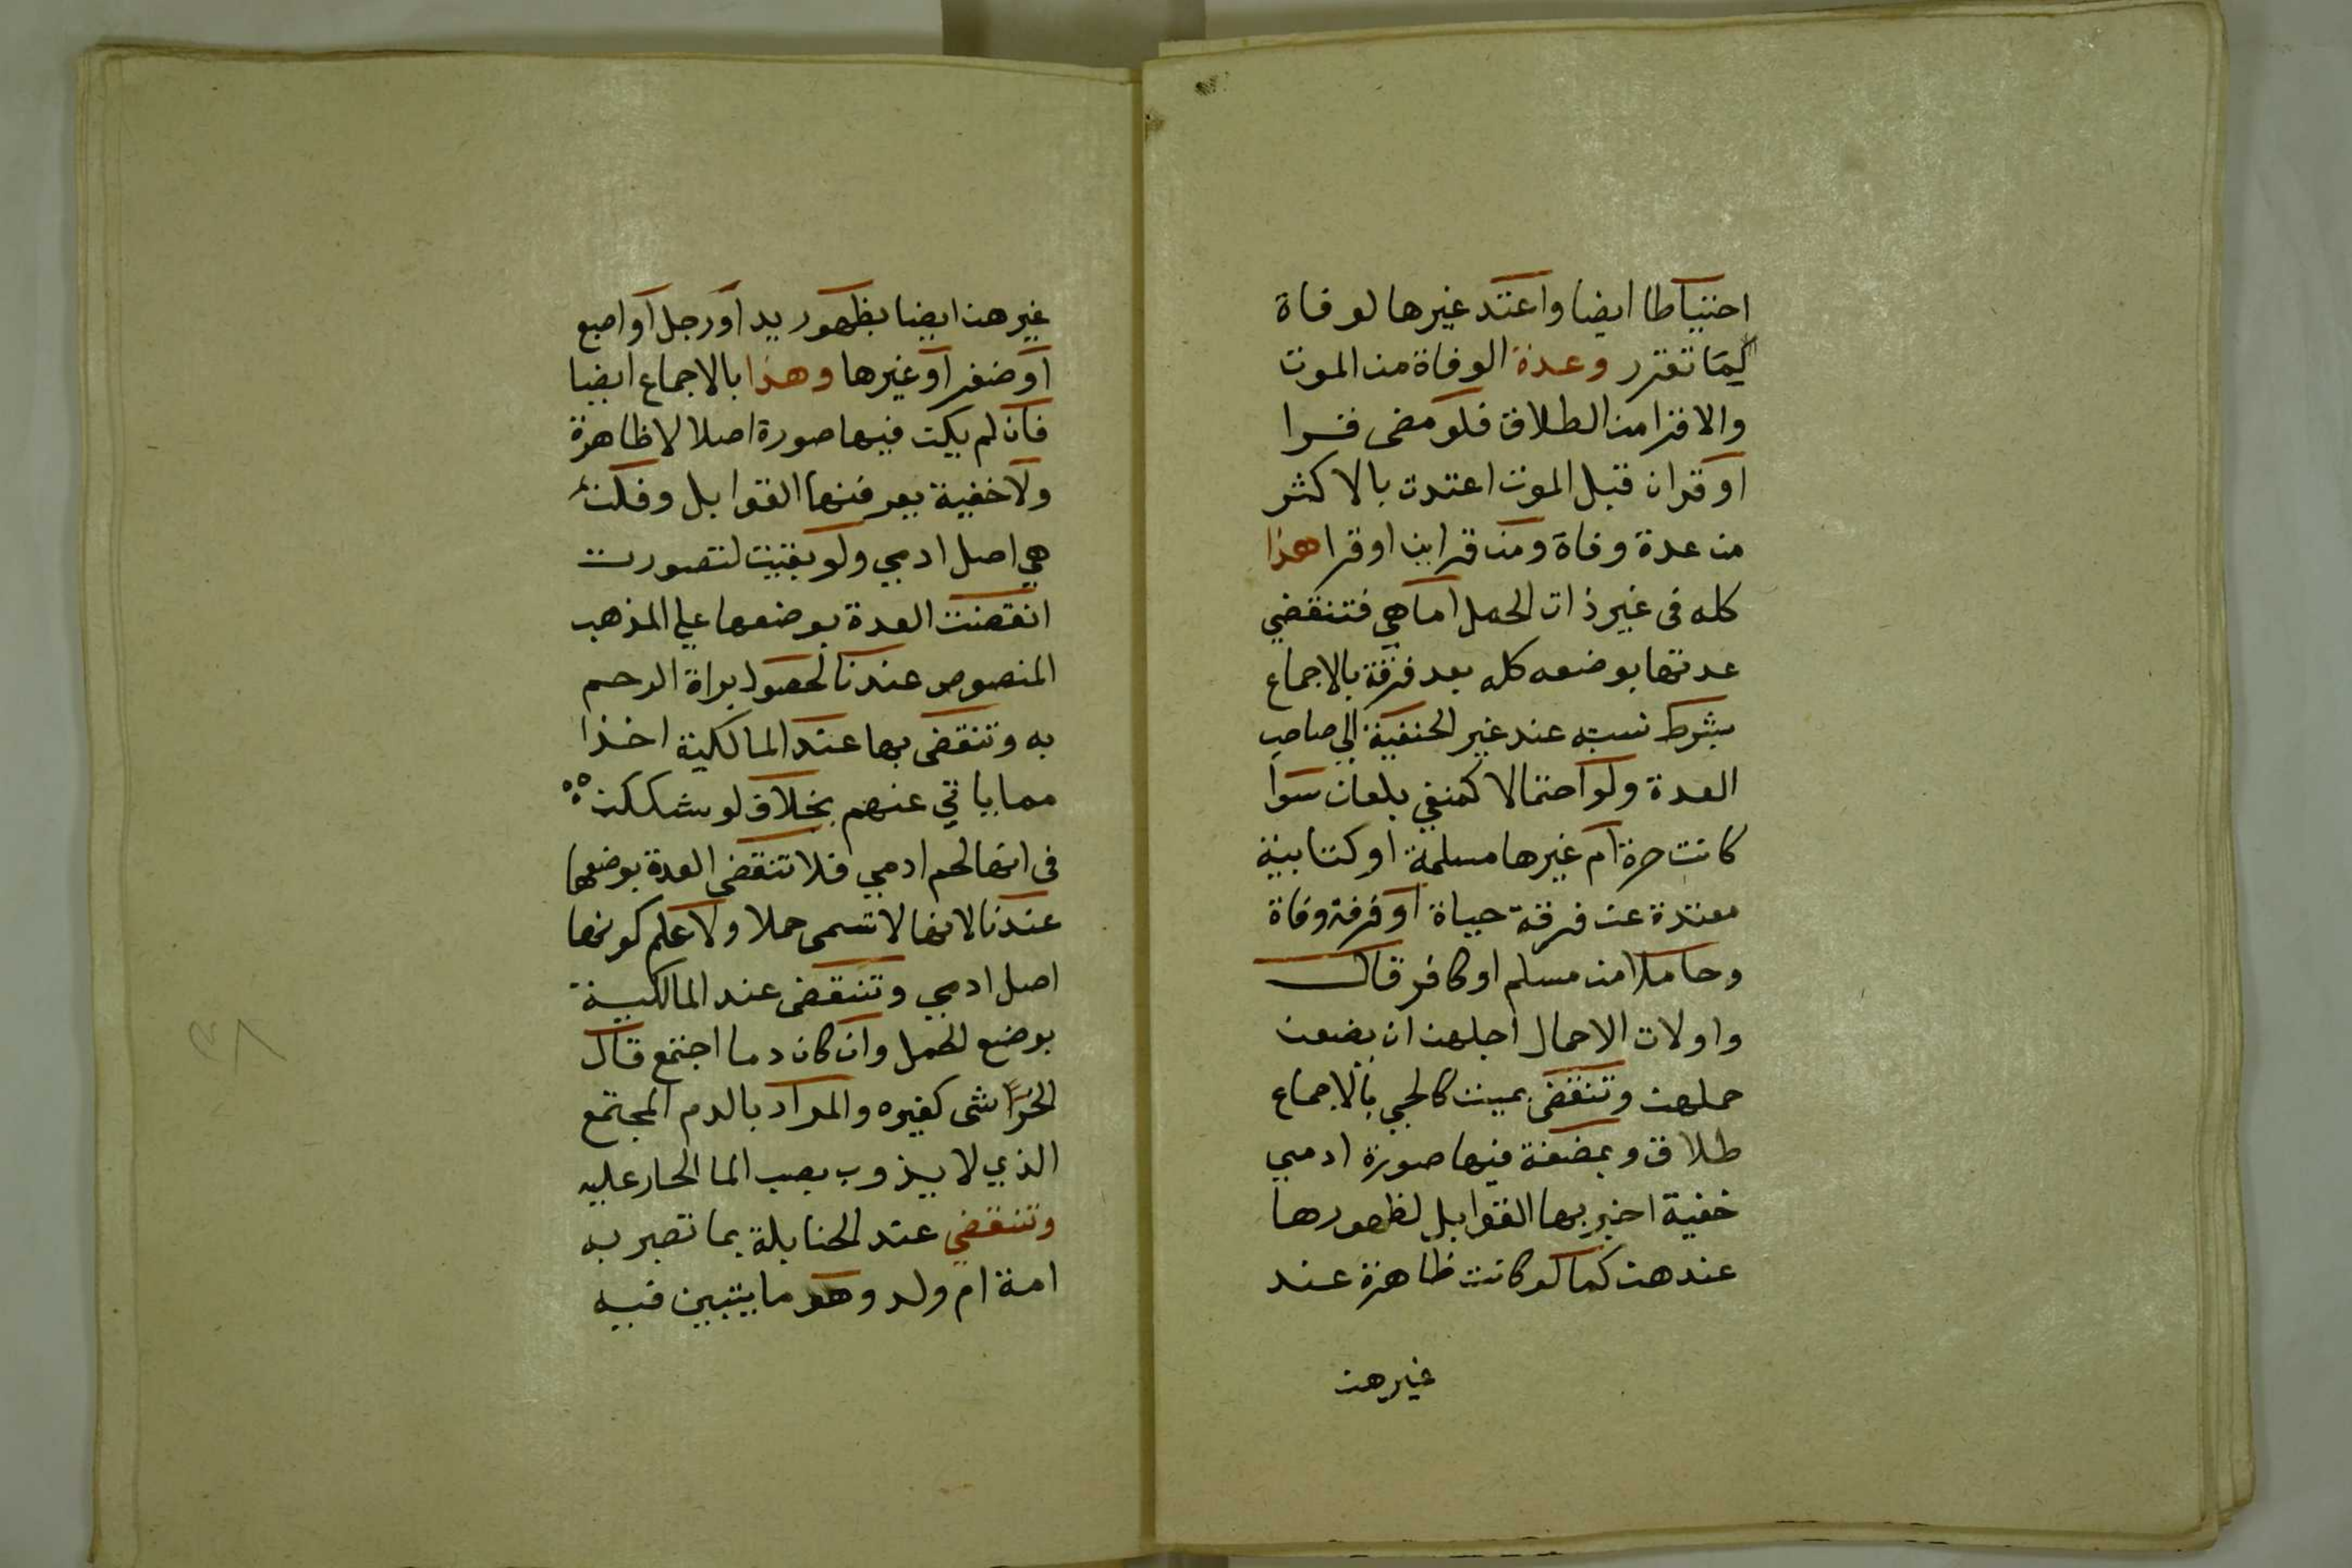 احتياطا ايضا واعتد غيرها لوفاة
كما تقرر وعدة الوفاة من الموت
والاقرا من الطلاق فلو مضى قرا
او قران قبل الموت اعتدت بالاكثر
من عدة وفاة ومن قراين او قرا هذا
كله فى غير ذات الحمل اما هي فتنقضي
عدتها بوضعه كله بعد فرقة بالاجماع
بشرط نسبته عند غير الحنفية الي صاحب
العدة ولو احتمالا كمنفي بلعان سوا
كانت حرة ام غيرها مسلمة او كتابية
معتدة عن فرقة حياة او فرقة وفاة
وحاملا من مسلم او كافر قال
واولات الاحمال اجلهن ان يضعن
حملهن وتنقضى بميت كالحي بالاجماع
طلاق وبمضغة فيها صورة ادمي
خفية اخبر بها القوابل لظهورها
عندهن كما لو كانت ظاهرة عند
غيرهن
غيرهن ايضا بظهور يد او رجل او اصبع
او ضفر او غيرها وهذا بالاجماع ايضا
فان لم يكن فيها صورة اصلا لا ظاهرة
ولا خفية يعرفنها القوابل وقلن
هي اصل ادمي ولو بقيت لتصورت
انقضت العدة بوضعها علي المذهب
المنصوص عندنا لحصول براة الرحم
به وتنقضى بها عند المالكية اخذا
مما ياتي عنهم بخلاف لو شككن
فى انها لحم ادمي فلا تنقضي العدة بوضعها
عندنا لانها لا تسمى حملا ولا علم كونها
اصل ادمي وتنقضى عند المالكية
بوضع الحمل وان كان دما اجتمع قال
الخراشى كغيره والمراد بالدم المجتمع
الذي لا يذوب بصب الما الحار عليه
وتنقضي عند الحنابلة بما تصير به
امة ام ولد وهو ما يتبين فيه